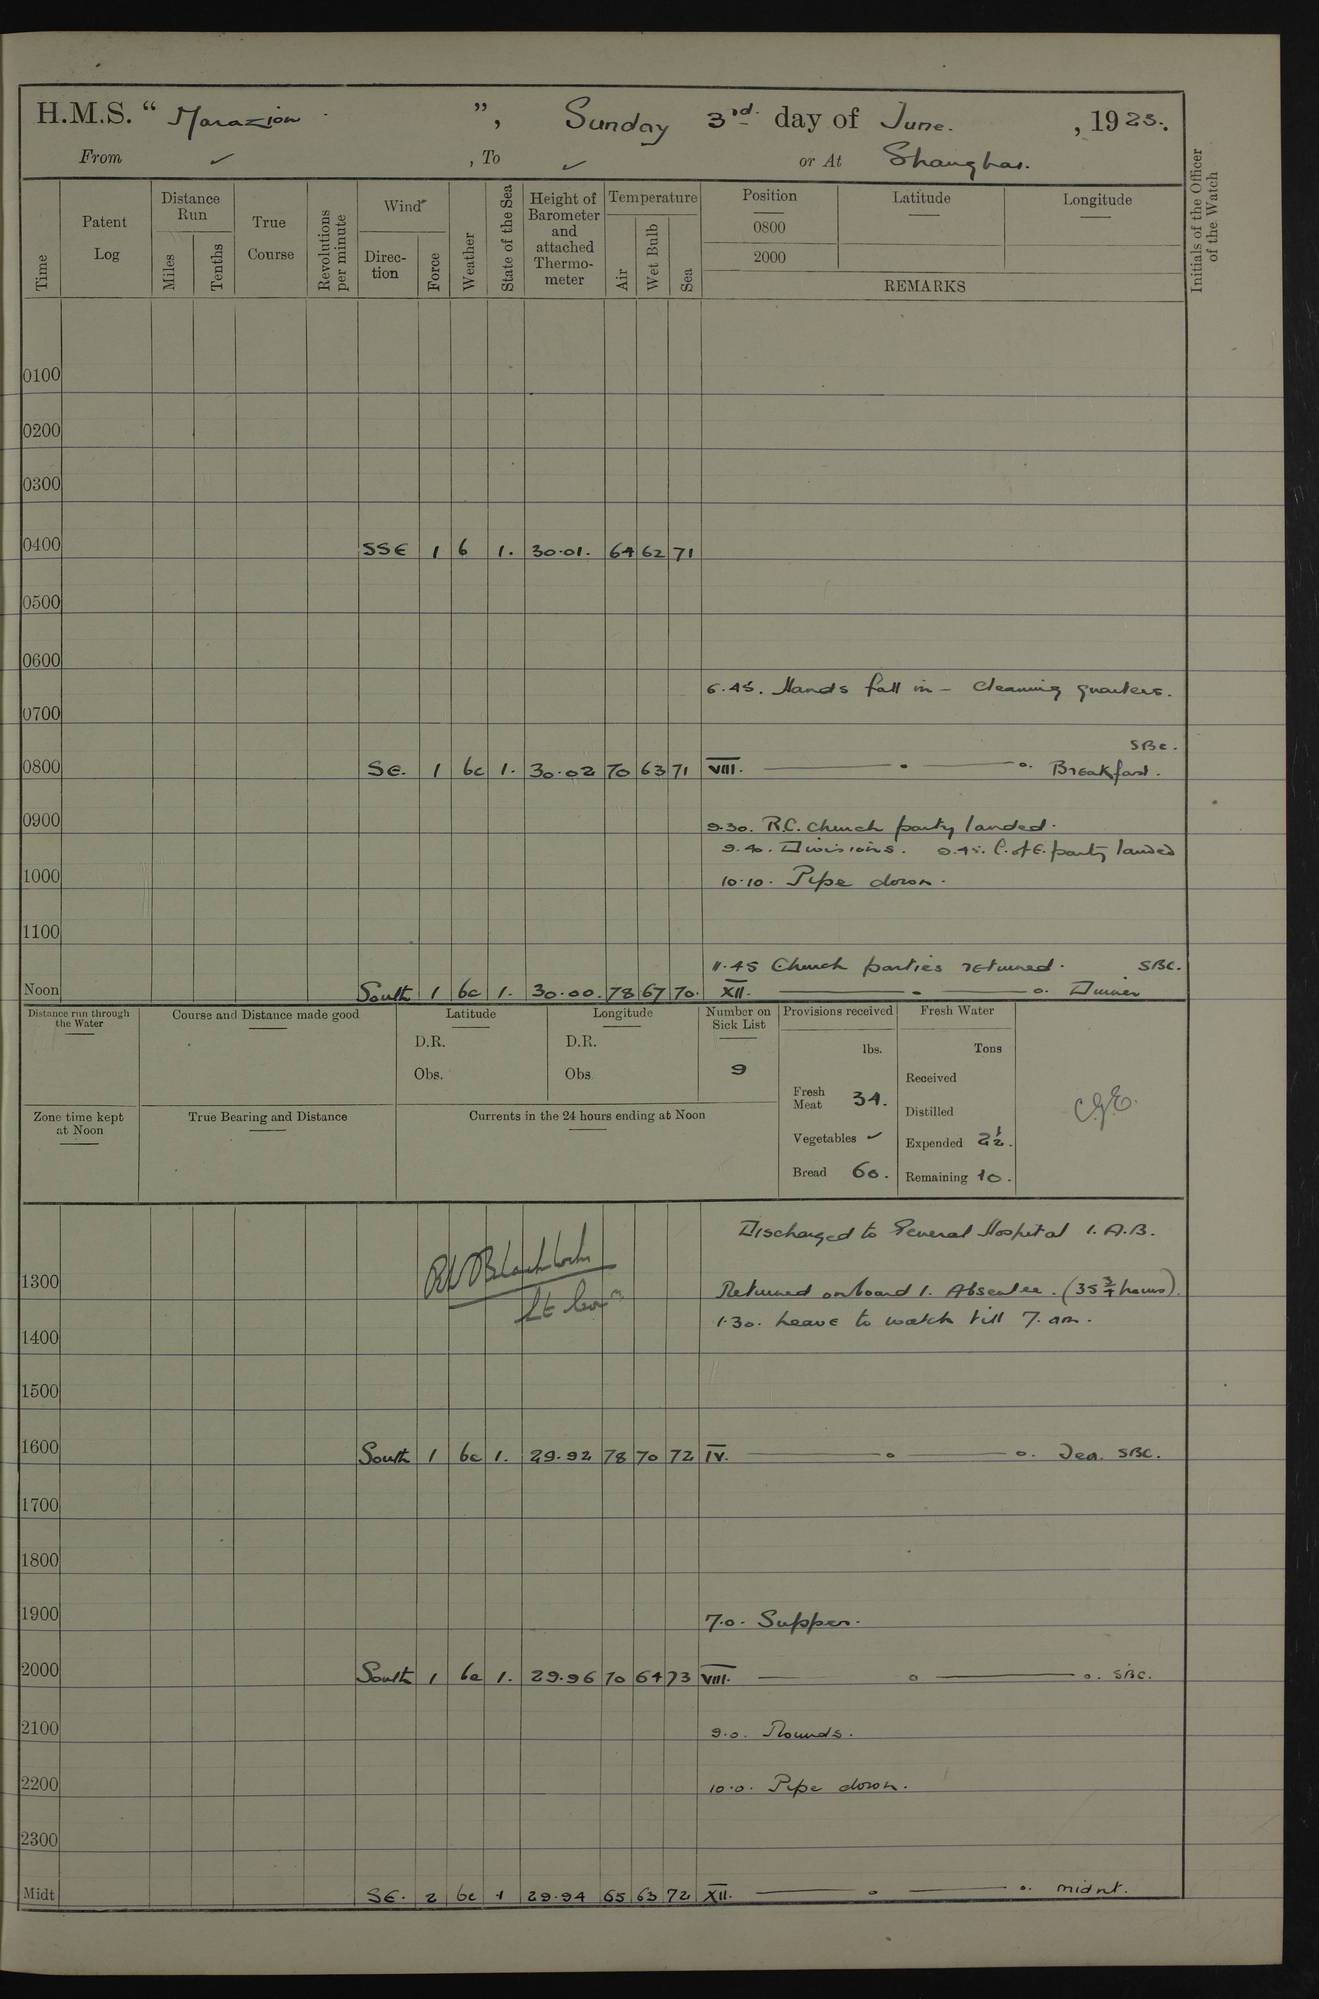 H.M.S. “ Marazion ”, Sunday 3rd. day of June. , 1923.
From ✓ , To ✓ or At Shanghai.
Time
Patent Log
Distance Run
Miles
Tenths
True Course
Revolutions per minute
Wind
Direc-tion
Force
Weather
State of the Sea
Height of Barometer and attached Thermo-meter
Temperature
Air
Wet Bulb
Sea
Position
Latitude
Longitude
0800
2000
REMARKS
Initials of the Officer of the Watch
0100
0200
0300
0400 SSE 1 b 1. 30.01. 64 62 71
0500
0600
6.45. Hands fall in – cleaning quarters.
0700
SBC.
0800 SE. 1 bc 1. 30.02 70 63 71 VIII. Breakfast.
0900
9.30. R.C. Church party landed.
9.40. Divisions. 9.45. C. of E. party landed
1000 10.10. Pipe down.
1100
11.45 Church parties returned. SBC.
Noon South 1 bc 1. 30.00. 78 67 70. XII. Dinner
Distance run through the Water
Course and Distance made good
Latitude
D.R.
Obs.
Longitude
D.R.
Obs
Number on Sick List
9
Provisions received
lbs.
Fresh Meat 34.
Vegetables ✓
Bread 60.
Fresh Water
Tons
Received
Distilled
Expended 2½.
Remaining 10.
Zone time kept at Noon
True Bearing and Distance
Currents in the 24 hours ending at Noon
Discharged to General Hospital 1. A.B.
1300 Returned onboard 1. Absentee. (35 ¾ hours).
1.30. Leave to watch till 7. am.
1400
1500
1600 South 1 bc 1. 29.92 78 70 72 IV. Tea. SBC.
1700
1800
1900 7.0. Supper.
2000 South 1 bc 1. 29.96 70 64 73 VIII. SBC.
2100 9.0. Rounds.
2200 10.0. Pipe down.
2300
Midt SE. 2 bc 1 29.94 65 63 72 XII. midnt.